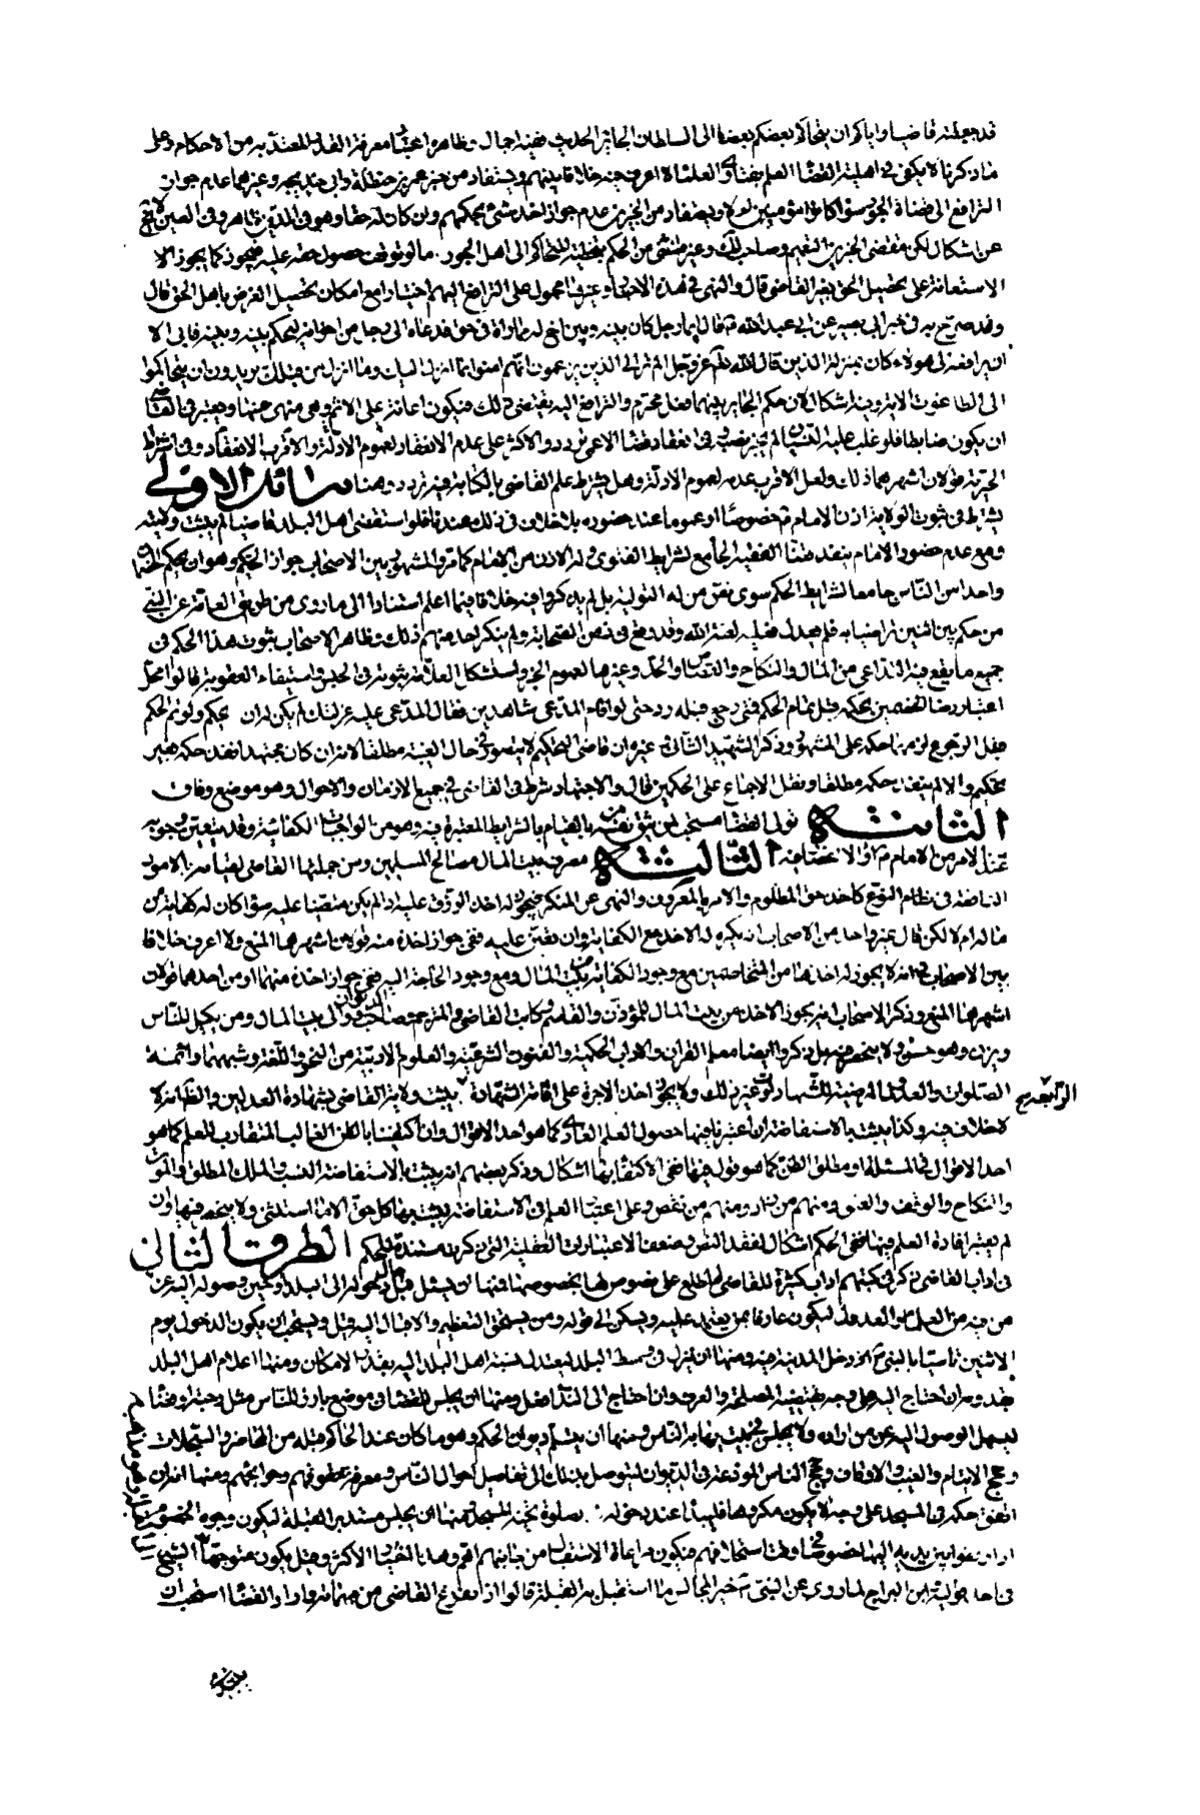 قد جعلته قاضيا واياكم ان يتحاكم بعضكم بعضا الى السلطان الجاير الحديث ففيه اجمال وظاهره اعتبار معرفة القدر المعتد به من الاحكام وعلى
ما ذكرنا لا يكفى فى اهلية القضاء العلم بفتاوى العلماء لا اعرف فيه خلافا بينهم ويستفاد من خبر عمر بن حنظلة وابى خديجة وغيرهما عدم جواز
الترافع الى قضاة الجور سواء كانوا مؤمنين ام لا ويستفاد من الخبرين عدم جواز اخذ شئ بحكمهم وان كان له حقا وهو فى الدين ظاهر وفى العين لا يخ
عن اشكال لكن مقتضى الخبرين التعميم وصاحب لك وغيره استثنى من الحكم بتخطئة التحاكم الى اهل الجور ما لو توقف حصول حقه عليه فيجوز كما يجوز الا
الاستعانة على تحصيل الحق بغير القاضى قال والنهى فى هذه الاخبار وغيرها محمول على الترافع اليهم اختيارا مع امكان تحصيل الغرض باهل الحق قال
وقد صرح به فى خبر ابى بصير عن ابى عبد الله ع قال ايما رجل كان بينه وبين اخ له مماراة فى حق فدعاه الى رجل من اخوانه ليحكم بينه وبينه فابى الا
ان يرافعه الى هؤلاء كان بمنزلة الذين قال الله عز وجل الم تر الى الذين يزعمون انهم امنوا بما انزل اليك وما انزل من قبلك يريدون ان يتحاكموا
الى الطاغوت الاية وفيه اشكال لان حكم الجاير بينهما فعل محرم والترافع اليه يقتضى ذلك فيكون اعانة على الاثم وهى منهى عنها ويعتبر فى القاضى
ان يكون ضابطا فلو غلب عليه النسيان لم يجز نصبه وفى انعقاد قضاء الاعمى تردد والاكثر على عدم الانعقاد لعموم الادلة والاقرب الانعقاد وفى اشتراط
الحرية قولان اشهرهما ذلك ولعل الاقرب عدمه لعموم الادلة وهل يشترط علم القاضى بالكتابة فيه تردد وهنا مسائل الاولى
يشترط فى ثبوت الولاية اذن الامام ع خصوصا او عموما عند حضوره بلا خلاف فى ذلك عندنا فلو استقضى اهل البلد قاضيا لم يثبت ولايته
ومع عدم حضور الامام ينفذ قضاء الفقيه الجامع لشرايط الفتوى له الاذن من الامام كما مر والمشهور بين الاصحاب جواز التحكيم وهو ان يحكم الخصمان
واحدا من الناس جامعا لشرايط الحكم سوى نص من له التولية بل لم يذكروا فيه خلافا فيما اعلم استنادا الى ما روى من طريق العامة عن النبى
من حكم بين اثنين تراضيا به فلم يعدل فعليه لعنة الله وقد وقع فى زمن الصحابة ولم ينكر احد منهم ذلك وظاهر الاصحاب ثبوت هذا الحكم فى
جميع ما يقع فيه التداعى من المال والنكاح والقصاص والحد وغيرها لعموم الخبر واستشكل العلامة ثبوته فى الحبس واستيفاء العقوبة قالوا محل
اعتبار رضا الخصمين بحكمه قبل تمام الحكم فمتى رجع قبله ردحتى لو اقام المدعى شاهدين فقال المدعى عليه عزلتك لم يكن له ان يحكم ولو تم الحكم
قبل الرجوع لزمهما حكمه على المشهور وذكر الشهيد الثانى وغيره ان قاضى التحكيم لا يتصور فى حال الغيبة مطلقا لانه ان كان مجتهدا نفذ حكمه بغير
تحكيم والا لم ينفذ حكمه مطلقا ونقل الاجماع على الحكمين قال والاجتهاد شرط فى القاضى فى جميع الازمان والاحوال وهو موضع وفاق
الثانية تولى القضاء مستحب لمن يثق من نفسه بالقيام بالشرايط المعتبرة فيه وهو من الواجبات الكفائية وقد يتعين وجوبه
عند الامر من الامام ع او الانحصار فيه الثالثة مصرف بيت المال مصالح المسلمين ومن جملتها القاضى لقيامه بالامور
النافعة فى نظام النوع كاخذ حق المظلوم والامر بالمعروف والنهى عن المنكر فيجوز له اخذ الرزق عليه اذا لم يكن متعينا عليه سواء كان له كفاية من
ماله ام لا لكن قال غير واحد من الاصحاب انه يكره له الاخذ مع الكفاية وان تعين عليه ففى جواز اخذه منه قولان اشهرهما المنع ولا اعرف خلافا
بين الاصحاب فى انه لا يجوز له اخذها من المتخاصمين مع وجود الكفاية من بيت المال ومع وجود الحاجة اليه ففى جواز اخذه منهما او من احدهما قولان
اشهرهما المنع وذكر الاصحاب انه يجوز الاخذ من بيت المال للمؤذن والقاسم وكاتب القاضى والمترجم وصاحب الديوان ووالى بيت المال ومن يكيل للناس
ويزن وهو حسن ولا ينحصر فيهم بل ذكروا ايضا معلم القرآن والاداب الحكمية والفنون الشرعية والعلوم الادبية من النحو واللغة وشبههما وائمة
الصلوات والعدول المرضية للشهادات وغير ذلك ولا يجوز اخذ الاجرة على اقامة الشهادة يثبت ولاية القاضى بشهادة العدلين والظاهر انه لا
الرابعة
لا خلاف فيه وكذا يثبت بالاستفاضة ان اعتبرنا فيها حصول العلم العادى كما هو احد الاقوال وان اكتفينا بالظن الغالب المتقارب للعلم كما هو
احد الاقوال فى المسئلة او مطلق الظن كما هو قول فيها ففى الاكتفاء بها اشكال وذكر بعضهم انه يثبت بالاستفاضة النسب والملك المطلق والموت
والنكاح والوقف والعتق ومنهم من زاد ومنهم من نقص وعلى اعتبار العلم فى الاستفاضة يثبت بها كل حق الا ما استثنى ولا ينحصر فيها وان
لم يعتبر افادة العلم فيها ففى الحكم اشكال لفقد النص وضعف الاعتبارات العقلية التى ذكرت مستندة للحكم الطرف الثانى
فى اداب القاضى ذكر فى كتبهم اداب كثيرة للقاضى لم اطلع على نصوص لها بخصوصها فمنها ان يسئل قبل دخوله الى البلد او حين وصوله اليه عن
من فيه من العلماء والعدول ليكون عارفا بمن يعتمد عليه ويسكن الى قوله ومن يستحق التعظيم والاقبال اليه وقيل ويستحب ان يكون الدخول يوم
الاثنين تاسيا بالنبى ص لما دخل المدينة فيه ومنها ان ينزل فى وسط البلد ليعتدل نسبة اهل البلد اليه بقدر الامكان ومنها اعلام اهل البلد
بقدومه ان احتاج اليه على وجه يقتضيه المصلحة والعرف وان احتاج الى النداء فعل ومنها ان يجلس للقضاء فى موضع بارز للناس مثل رحبة او فضاء
ليسهل الوصول اليه عن من اراده ولا يجلس فى بيت يهابه الناس ومنها ان يتسلم ديوان الحكم وهو ما كان عند الحاكم قبله من المحاضر والسجلات
وحجج الايتام والغيب والاوقاف وحجج الناس المودعة فى الديوان ليتوصل بذلك الى تفاصيل احوال الناس ومعرفة حقوقهم وحوائجهم ومنها انه ان
اتفق حكمه فى المسجد على وجه لا يكون مكروها فليبدأ عند دخوله بصلوة تحية المسجد ومنها ان يجلس مستدبر القبلة ليكون وجوه الخصوم
فى احد قوليه ابن البراج لما روى عن النبى ص خير المجالس ما استقبل به القبلة قالوا اذا تفرغ القاضى من مهماته واراد القضاء استحب ان